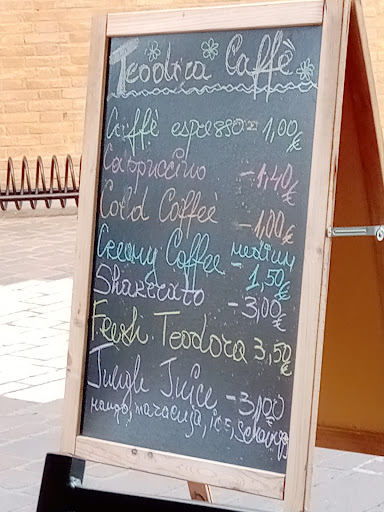 Teodora Caffè
Caffè espresso - 1,00 €
Cappuccino - 1,40 €
Cold Coffeè - 1,00 €
Creamy Coffee medium - 1,50 €
Shakerato - 3,00 €
Fresh Teodora 3,50 €
Jungle Juice - 3,00
mango, maracuja,